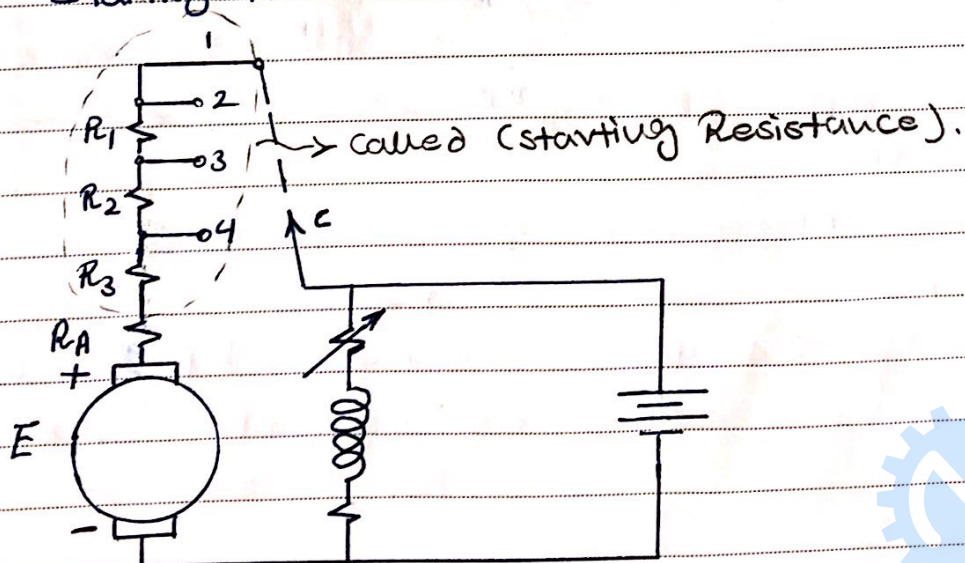 1
2
R1
3
→ Called (Starting Resistance).
R2
C
4
R3
RA
+
E
-